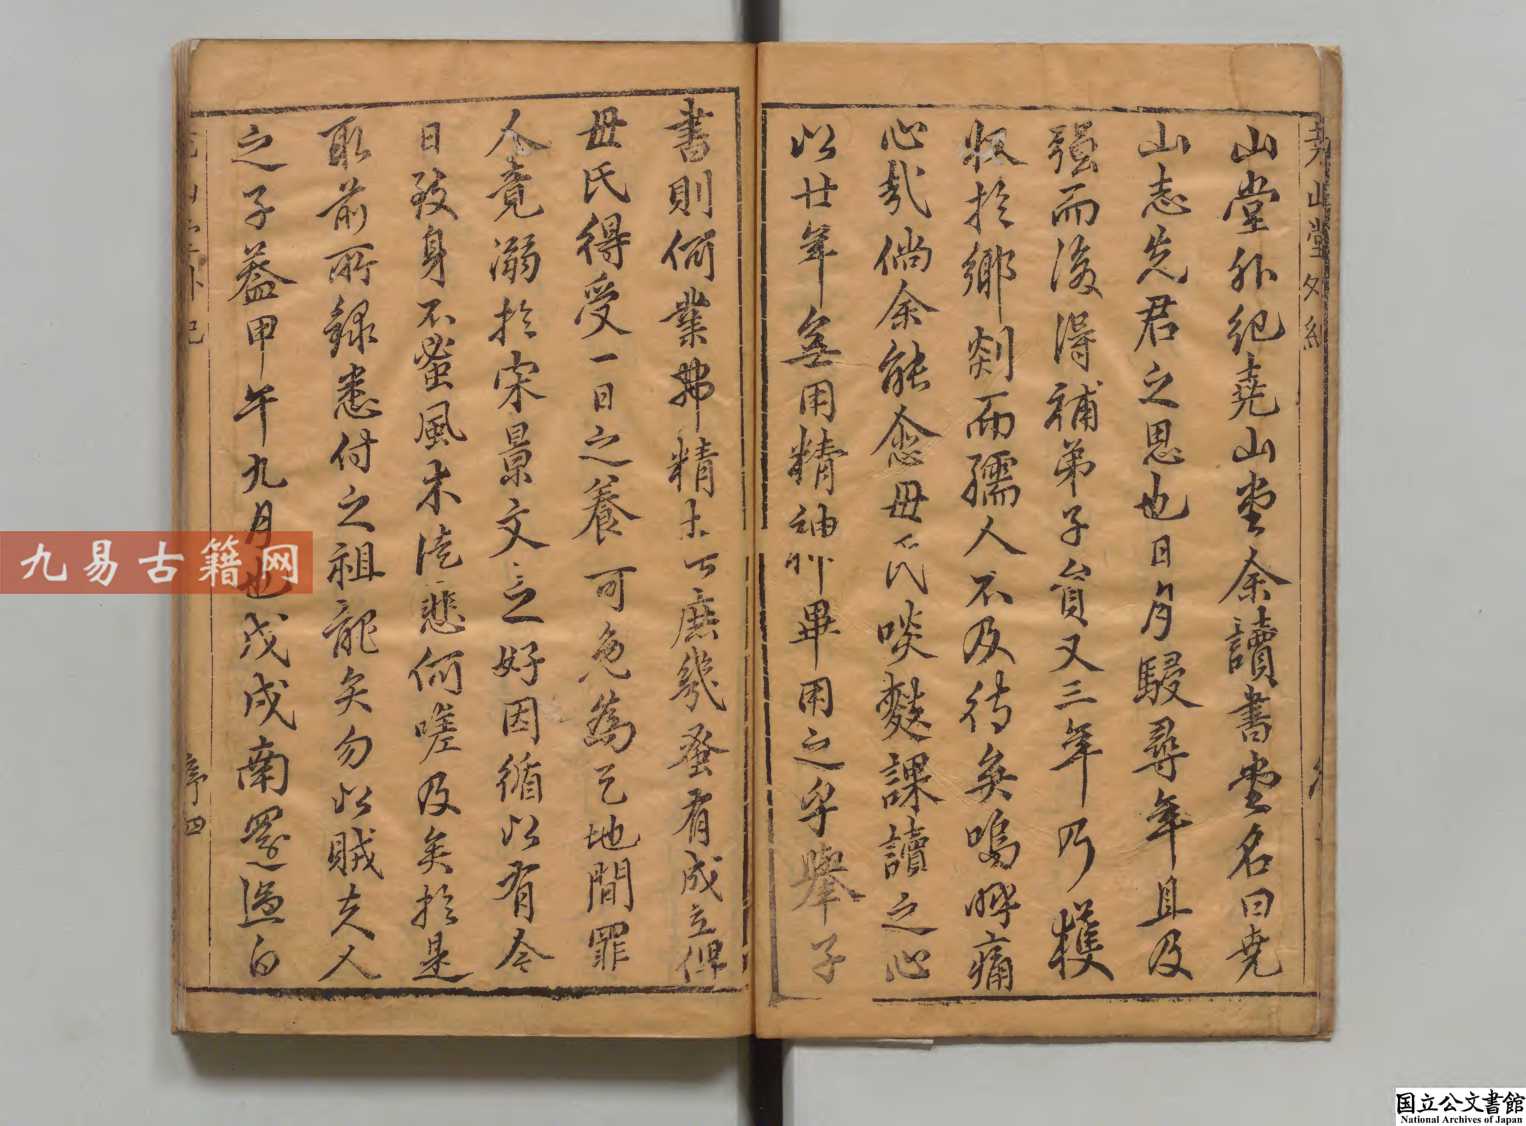 山堂外紀堯山堂余讀書堂名曰堯
山志先君之思也日月駸尋年且及
強而後得補弟子員又三年乃獲
收於鄉剡而孺人不及待矣嗚呼痛
心哉倘余能愈母氏啖麨課讀之心
以廿年無用精神畢用之乎舉子
書則何業弗精亦庶幾蚤有成立俾
母氏得受一日之養可免為天地間罪
人竟溺於宋景文之好因循以有今
日致身不蚤風木徒悲何嗟及矣於是
取前所錄悉付之祖龍矣勿以賊夫人
之子蓋甲午九月也戊戌南還過白
堯山堂外紀
序四
九易古籍网
国立公文書館
National Archives of Japan